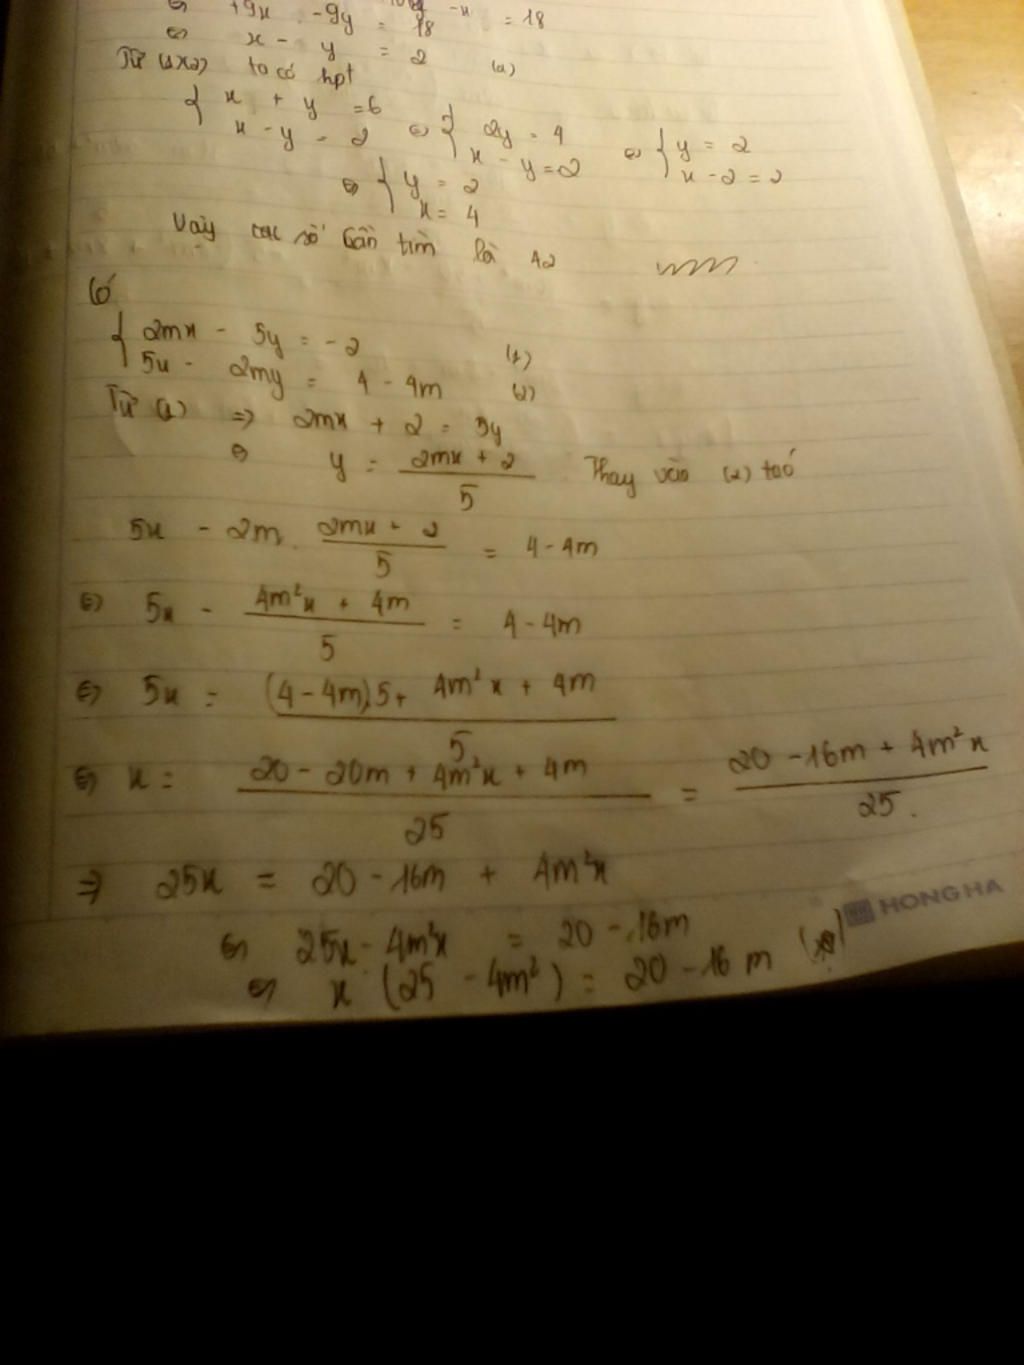 ⇔ +9x - 9y = 18 - x = 18
⇔ x - y = 2 (2)
Từ (1)(2) ta có hpt
{ x + y = 6 ⇔ { 2y = 4 ⇔ { y = 2
x - y = 2 x - y = 2 x - 2 = 2
⇔ { y = 2
x = 4
Vậy các số cần tìm là 42
6
{ 2mx - 5y = -2 (1)
5x - 2my = 4 - 4m (2)
Từ (1) ⇒ 2mx + 2 = 5y
⇔ y = (2mx + 2)/5 Thay vào (2) ta có
5x - 2m . (2mx + 2)/5 = 4 - 4m
⇔ 5x - (4m²x + 4m)/5 = 4 - 4m
⇔ 5x = ((4 - 4m).5 + 4m²x + 4m)/5
⇔ x = (20 - 20m + 4m²x + 4m)/25 = (20 - 16m + 4m²x)/25.
⇒ 25x = 20 - 16m + 4m²x
HONG HA
⇔ 25x - 4m²x = 20 - 16m
⇔ x (25 - 4m²) = 20 - 16m (*)